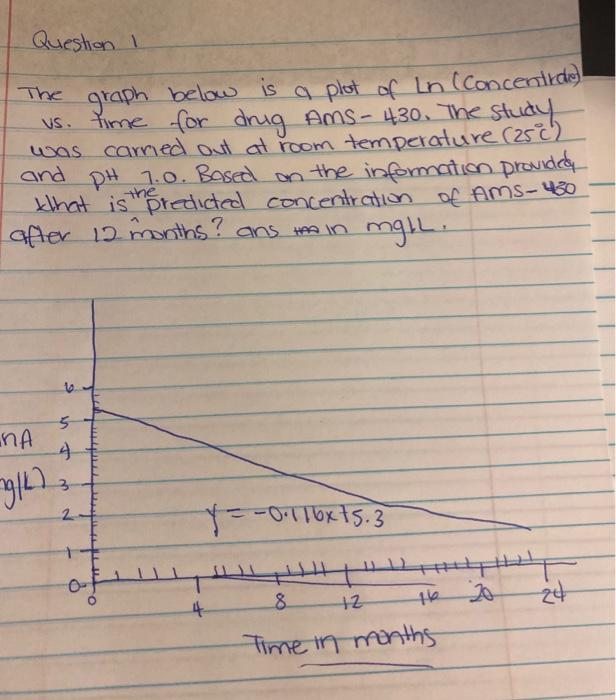 Question 1
The graph below is a plot of Ln (Concentrate)
vs. time for drug AMS-430. The study
was carried out at room temperature (25°C)
and pH 7.0. Based on the information provided,
What is the predicted concentration of AMS-430
after 12 months? ans in mg/L.
6
5
nA
4
mg/L) 3
2
y = -0.116x+5.3
1
0
0 4 8 12 16 20 24
Time in months